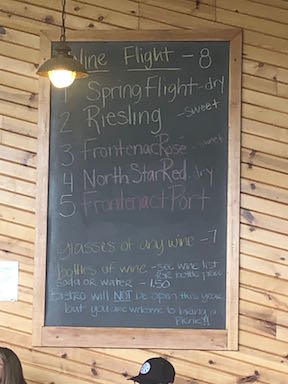 Wine Flight - 8
1 Spring Flight - dry
2 Riesling - sweet
3 Frontenac Rosé - sweet
4 North Star Red - dry
5 Frontenact Port
glasses of any wine - 7
bottles of wine - see wine list
for bottle price
soda or water - 1.50
Bistro will NOT be open this year
but you are welcome to bring a
picnic!!